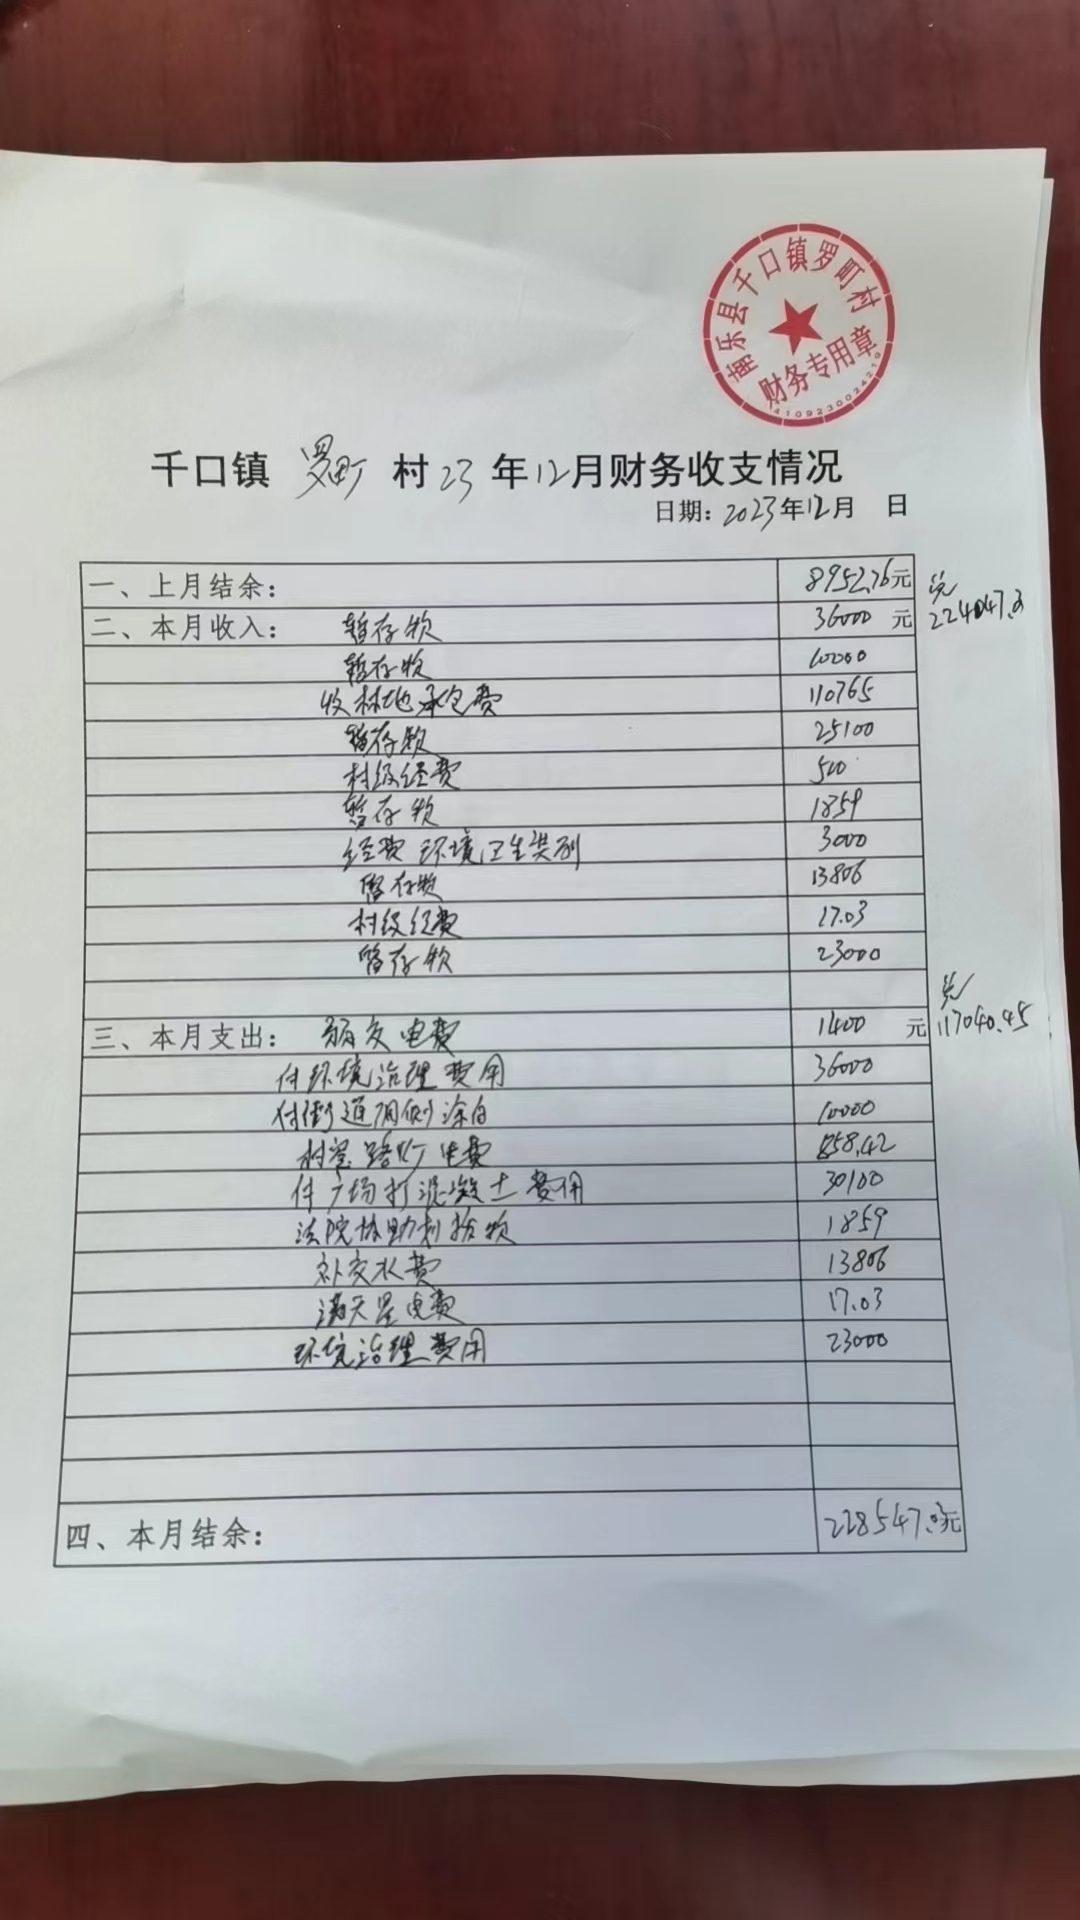 南乐县千口镇罗町村
财务专用章
4109230024219
千口镇 罗町 村 23 年 12月财务收支情况
日期: 2023年12月 日
一、上月结余: 8952.76元
共
224047.03
二、本月收入: 暂存款 36000 元
暂存款 10000
收林地承包费 110765
暂存款 25100
村级经费 500
暂存款 1859
经费 环境卫生类别 3000
暂存款 13806
村级经费 17.03
暂存款 23000
共
117040.45
三、本月支出: 交电费 1400 元
付环境治理费用 36000
付街道两侧涂白 10000
村室路灯电费 858.42
付广场打混凝土费用 30100
法院协助划拨款 1859
补交水费 13806
满天星电费 17.03
环境治理费用 23000
四、本月结余: 228547.03元